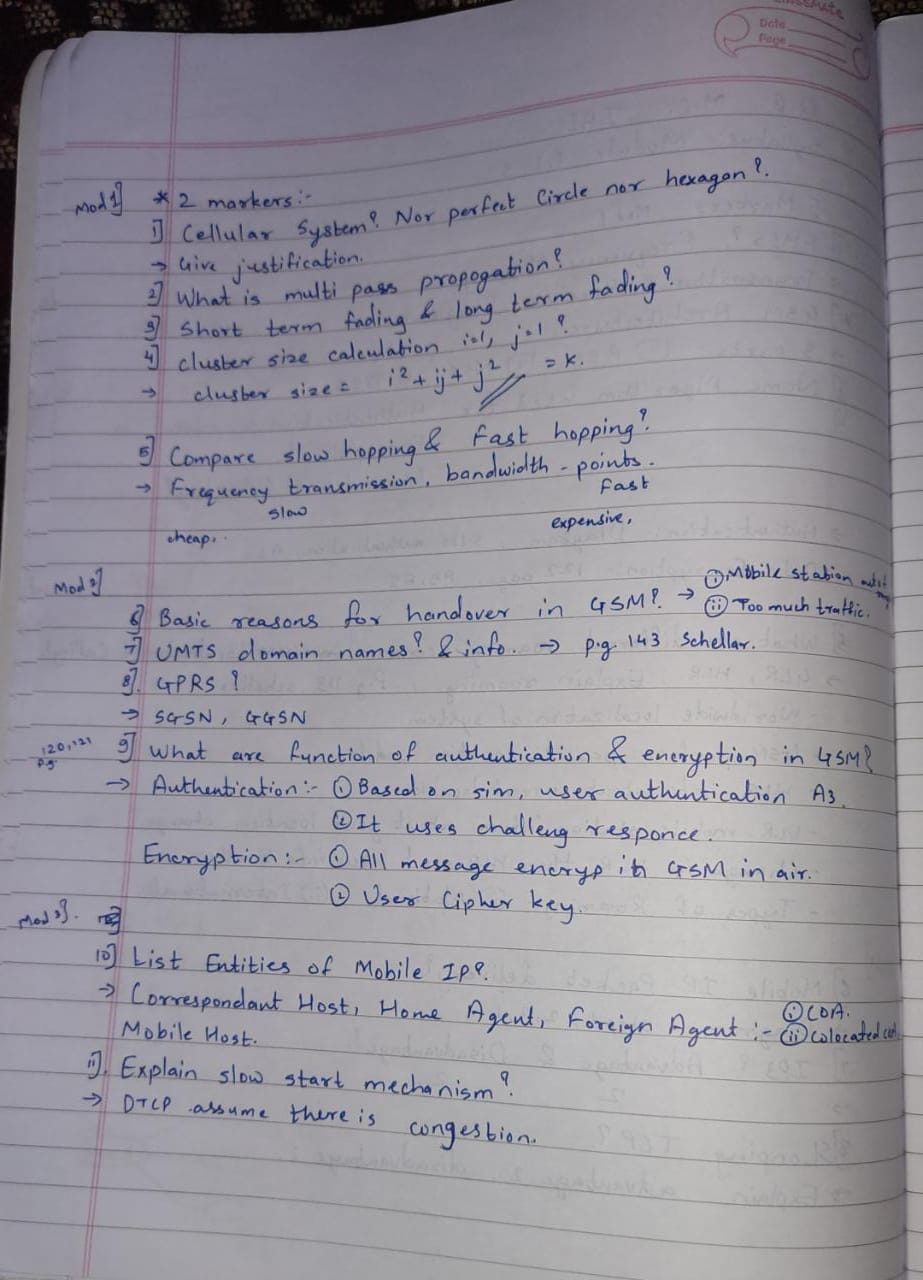 classmate
Date
Page
Mod 1] * 2 markers :-
1] Cellular System? Nor perfect Circle nor hexagon?.
→ Give justification.
2] What is multi pass propogation?
3] Short term fading & long term fading?
4] cluster size calculation i=1, j=1?
→ cluster size = i² + ij + j² = K.
5] Compare slow hopping & fast hopping?
→ Frequency transmission, bandwidth - points.
slow fast
cheap, expensive,
Mod 2]
6] Basic reasons for handover in GSM? → ① Mobile station
ⅱ Too much traffic.
7] UMTS domain names? & info. → p.g. 143 schellar.
8]. GPRS ?
→ SGSN, GGSN
120,121
p.g
9] What are function of authentication & encryption in GSM?
→ Authentication :- ① Based on sim, user authentication A3.
② It uses challeng responce.
Encryption :- ① All message encryp in GSM in air.
② Uses Cipher key.
Mod 3].
10] List Entities of Mobile IP?.
→ Correspondant Host, Home Agent, Foreign Agent :- ① COA.
ⅱ colocated
Mobile Host.
11]. Explain slow start mechanism?
→ TCP assume there is congestion.